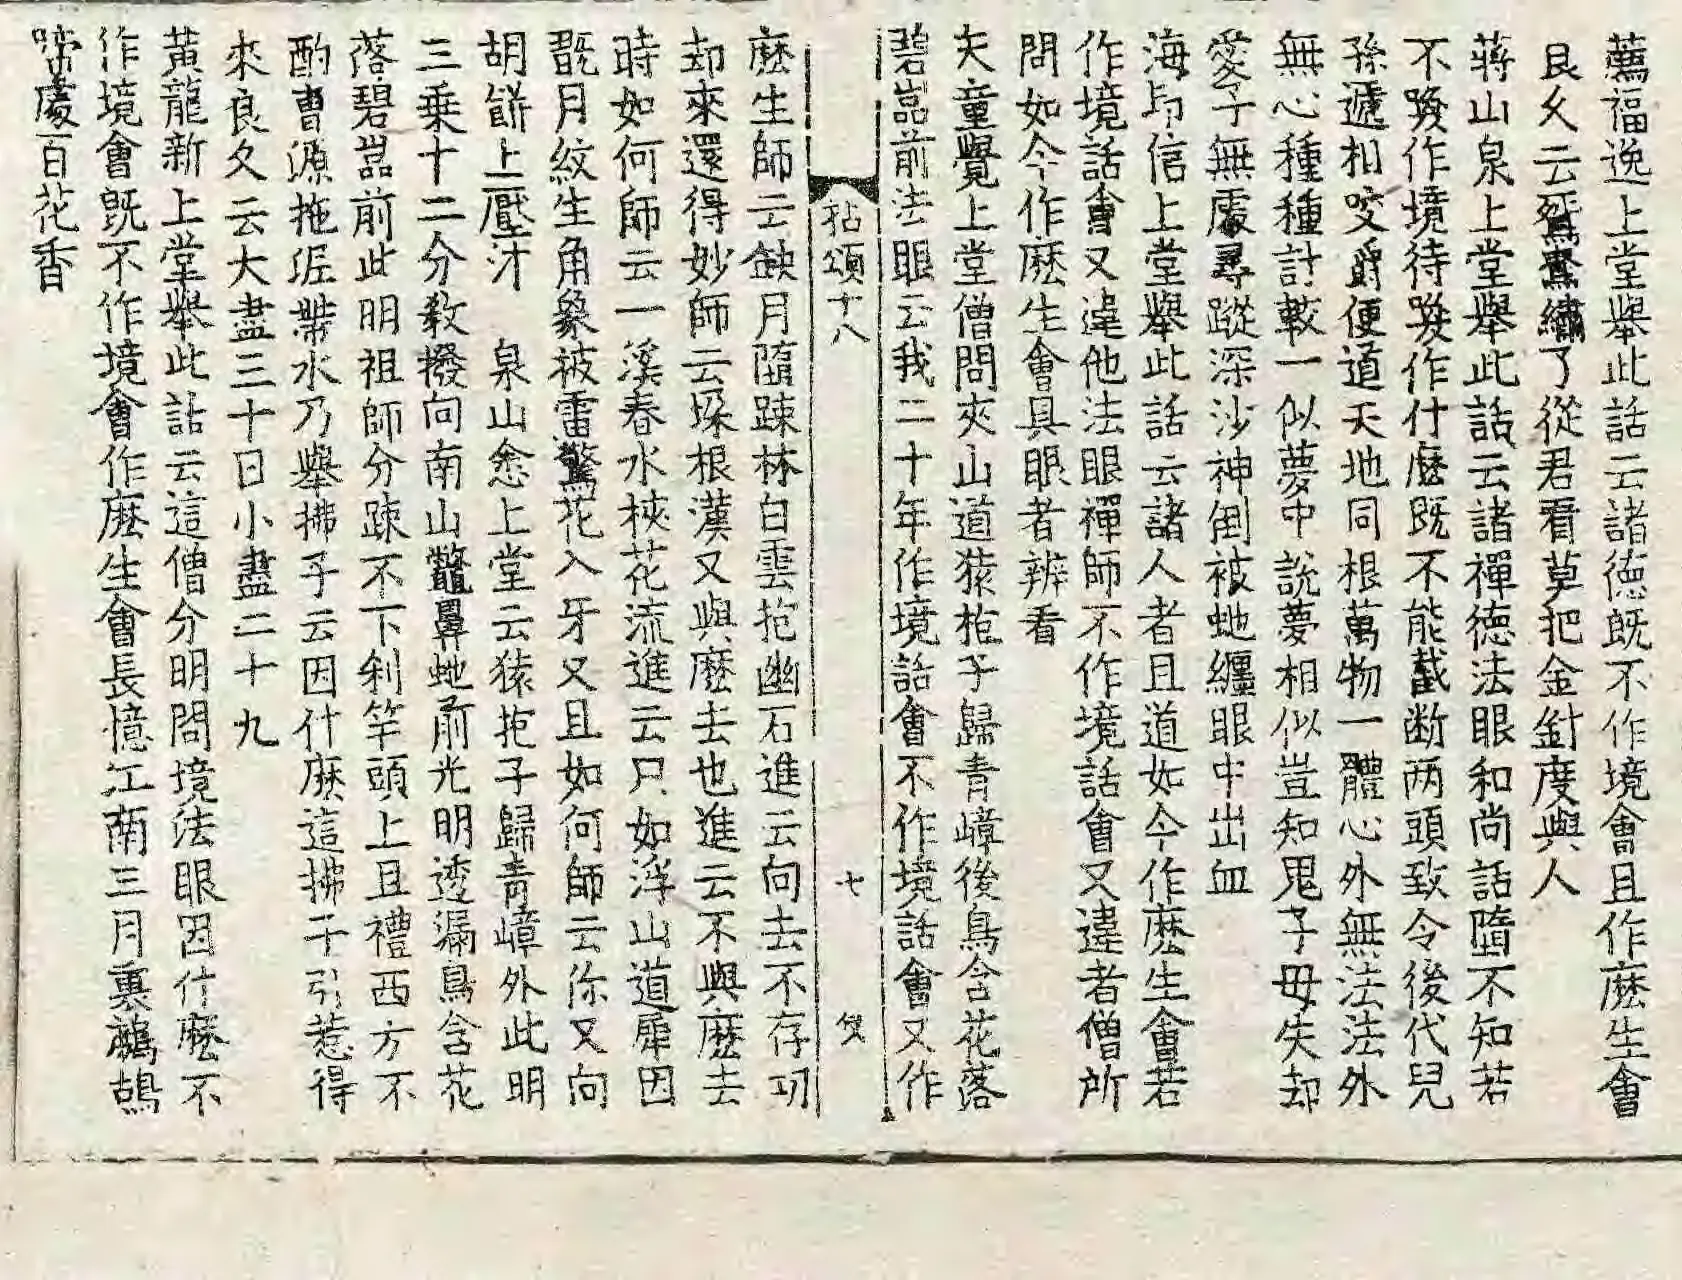 薦福逸上堂舉此話云諸德旣不作境會且作麽生會
良久云鴛鴦繡了從君看莫把金針度與人
蔣山泉上堂舉此話云諸禪德法眼和尚話墮不知若
不喚作境待喚作什麽旣不能截断两頭致令後代兒
孫遞相咬嚼便道天地同根萬物一體心外無法法外
無心種種計較一似夢中說夢相似豈知鬼子母失却
愛子無處尋蹤深沙神倒被虵纏眼中出血
海印信上堂舉此話云諸人者且道如今作麽生會若
作境話會又違他法眼禪師不作境話會又違者僧所
問如今作麽生會具眼者辨看
夫童覺上堂僧問夾山道猿抱子歸青嶂後鳥含花落
碧嵓前法眼云我二十年作境話會不作境話會又作
拈頌十八 七
麽生師云蝕月隨踈林白雲抱幽石進云向去不存功
却來還得妙師云垜根漢又與麽去也進云不與麽去
時如何師云一溪春水桃花流進云只如浮山道犀因
翫月紋生角象被雷驚花入牙又且如何師云你又向
胡餠上壓汁 泉山悆上堂云猿抱子歸青嶂外此明
三乗十二分敎撥向南山鼈鼻虵前光明透漏鳥含花
落碧嵓前此明祖師分踈不下刹竿頭上且禮西方不
酌曹源拖泥帶水乃舉拂子云因什麽這拂子引惹得
來良久云大盡三十日小盡二十九
黃龍新上堂舉此話云這僧分明問境法眼因什麽不
作境會旣不作境會作麽生會長憶江南三月裏鷓鴣
啼處百花香